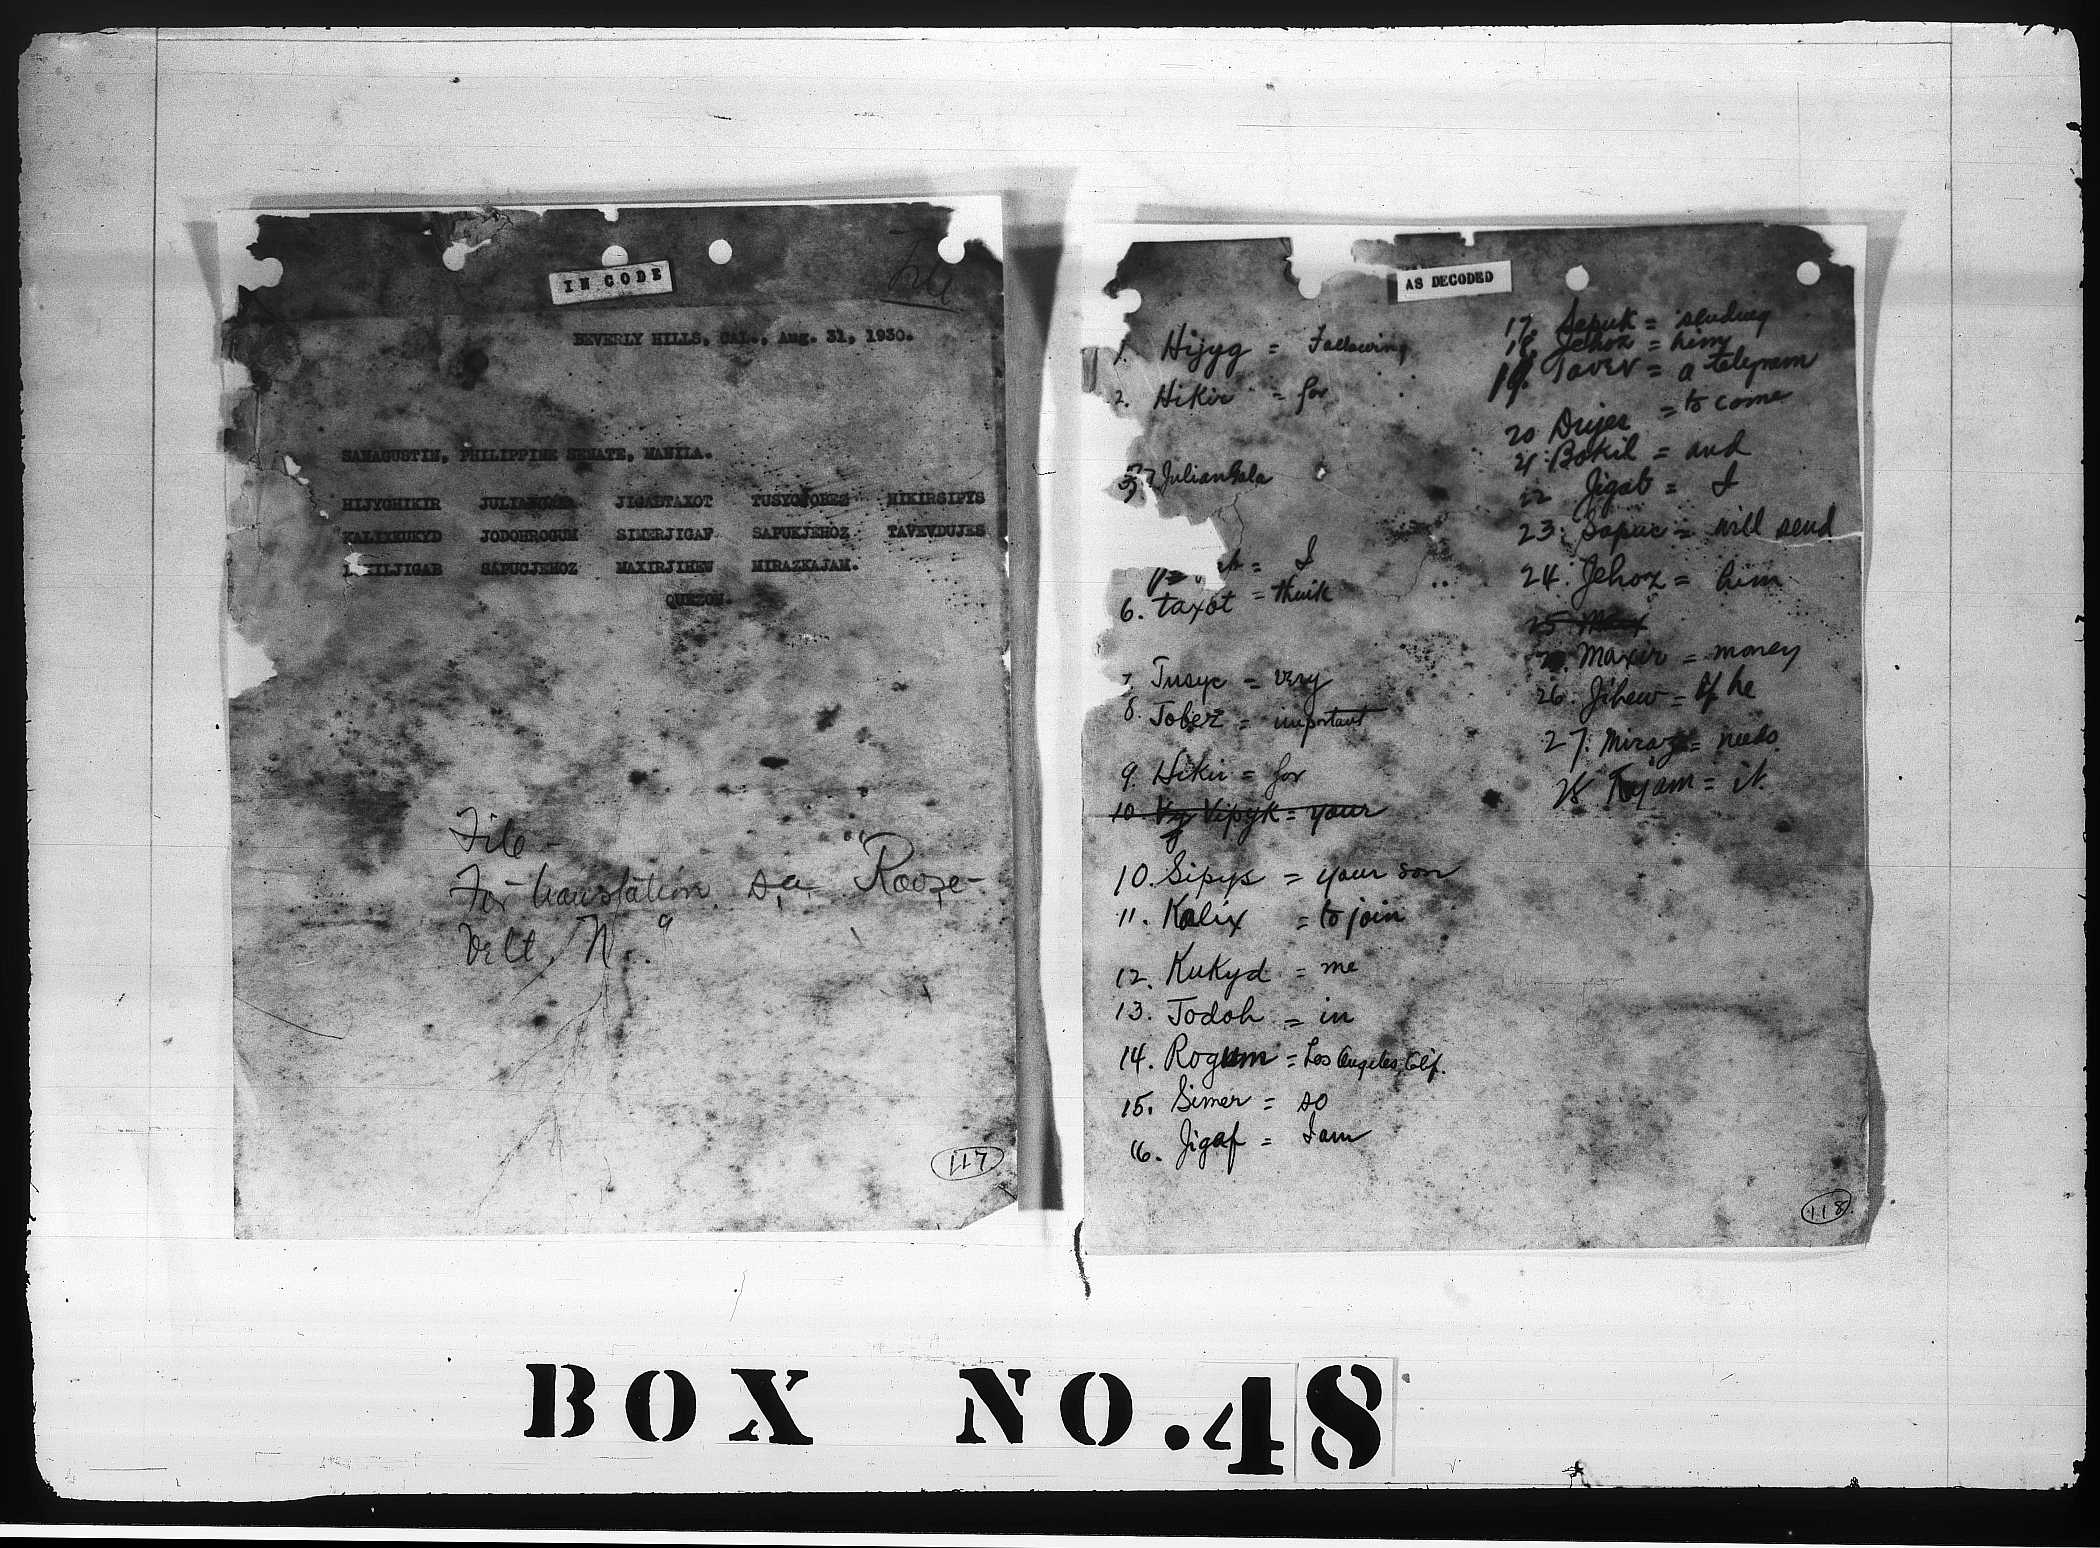 IN CODE
File
BEVERLY HILLS, CAL., Aug. 31, 1930.
SANAGUSTIN, PHILIPPINE SENATE, MANILA.
HIJYGHIKIR JULIANGALA JIGABTAXOT TUSYCTOBEZ HIKIRSIPYS
KALIXKUKYD JODOHROGUM SIMERJIGAF SAPUKJEHOZ TAVEVDUJES
KILJIGAB SAPUCJEHOZ MAXIRJIHEW MIRAZKAJAM.
QUEZON.
File -
For translation sa "Roose-
velt, N."
117
AS DECODED
1. Hijyg = Following
2. Hikir = for
JulianGala
= I
6. taxot = think
7 Tusyc = very
8. Tobez = important
9. Hikir = for
10. Vy Vipyk = your
10. Sipys = your son
11. Kalix = to join
12. Kukyd = me
13. Jodoh = in
14. Rogum = Los Angeles, Calif.
15. Simer = so
16. Jigaf = I am
17. Sapuk = sending
18. Jehoz = him
19. Tavev = a telegram
20 Dujes = to come
21. Bokil = and
22 Jigab = I
23. Sapuc = will send
24. Jehoz = him
25 Max
Maxir = money
26. Jihew = if he
27. Miraz = needs
28 Kajam = it.
118
BOX NO. 48